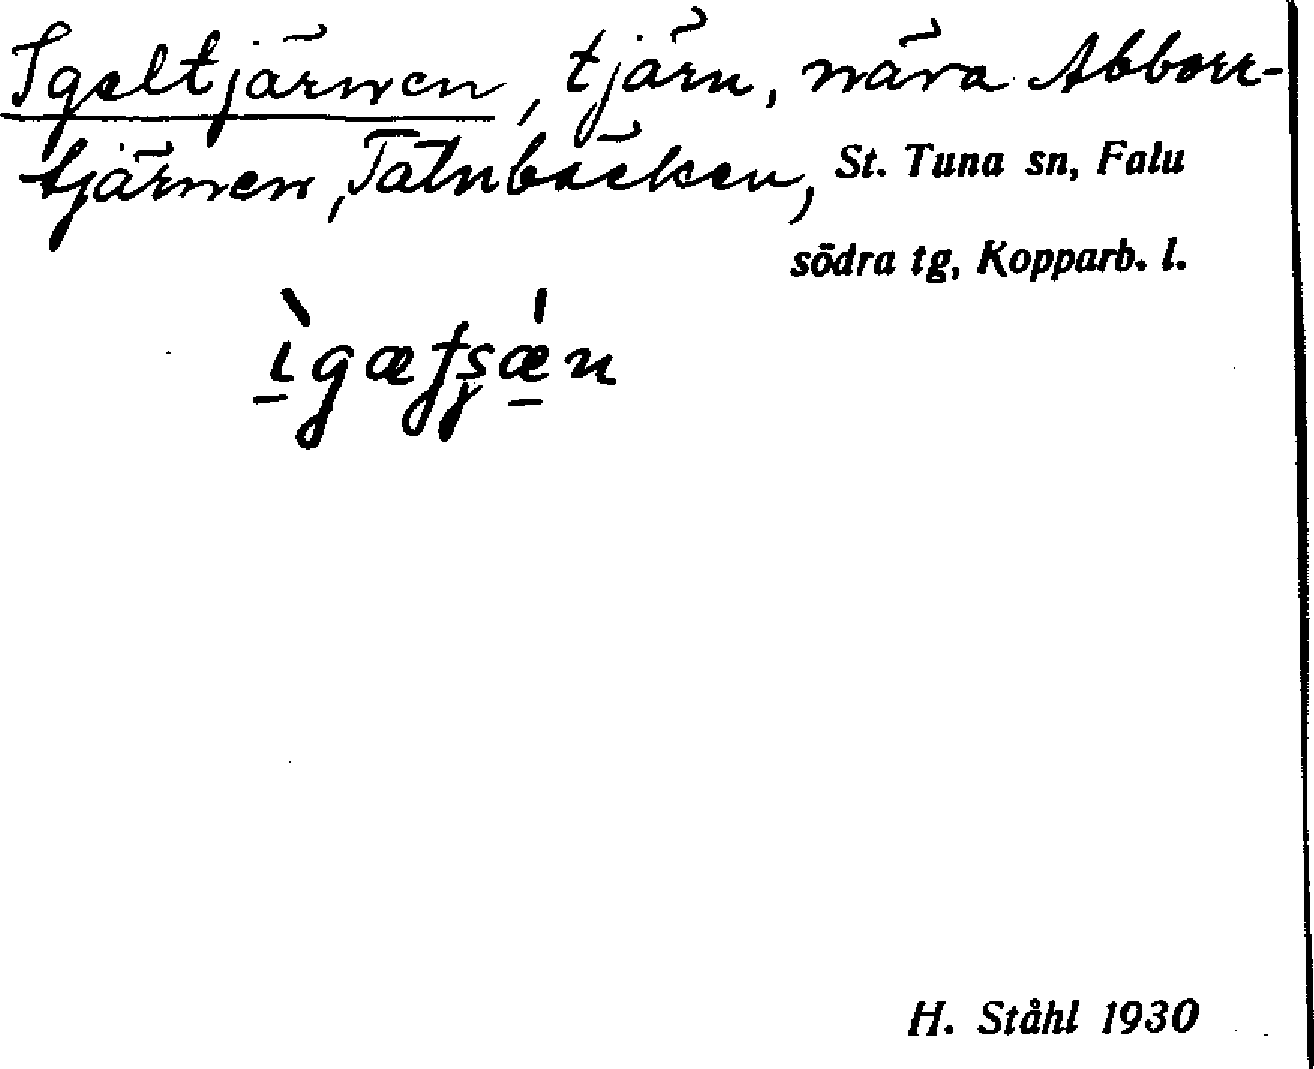 Igeltjärnen, tjärn, nära Abborr-
tjärnen, Tälnbäcken, St. Tuna sn, Falu
södra tg, Kopparb. l.
H. Ståhl 1930